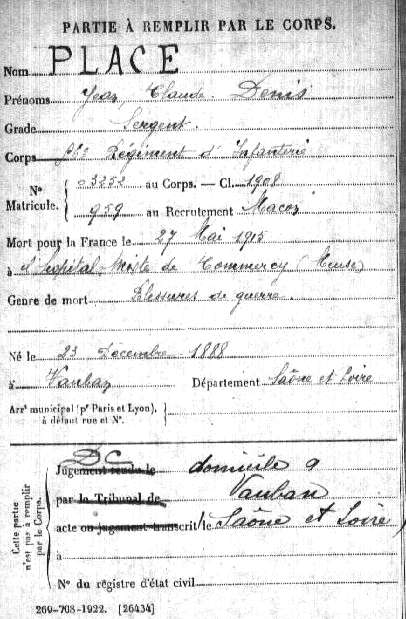 PARTIE À REMPLIR PAR LE CORPS.
Nom PLACE
Prénoms Jean, Claude Denis
Grade Sergent.
Corps Régiment d'Infanterie
N° Matricule. 03252 au Corps. — Cl. 1908
959 au Recrutement Macon
Mort pour la France le 27 Mai 1915
à l'hopital Mixte de Commercy (Meuse)
Genre de mort Blessures de guerre.
Né le 23 Décembre 1888
à Vauban Département Saône et Loire
Arr' municipal (p' Paris et Lyon),
à défaut rue et N°.
DC
Jugement rendu le domicile a
par le Tribunal de Vauban
acte ou jugement transcrit le Saône et Loire)
à
N° du registre d'état civil
Cette partie n'est pas à remplir par le Corps.
269-708-1922. [26434]